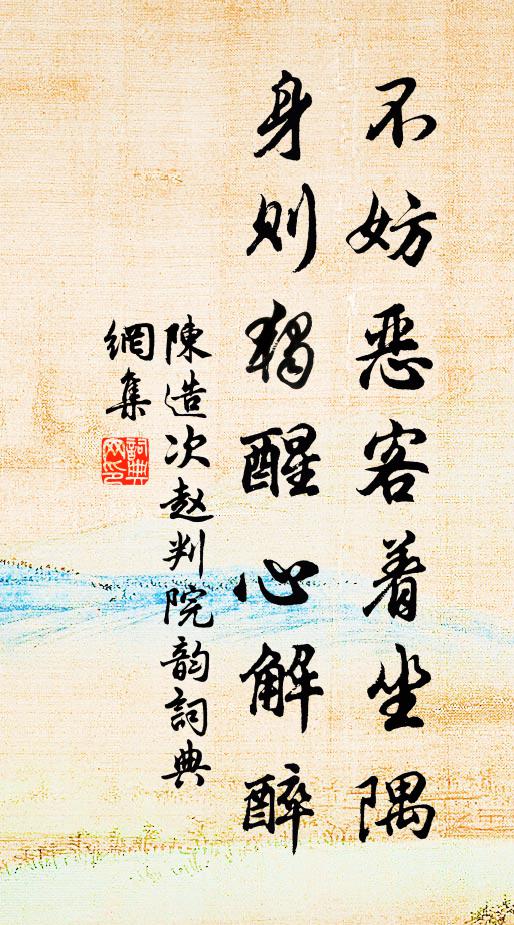 不妨恶客着坐隅
身则独醒心解醉
陳造次赵判院韵詞典
網集
詞典